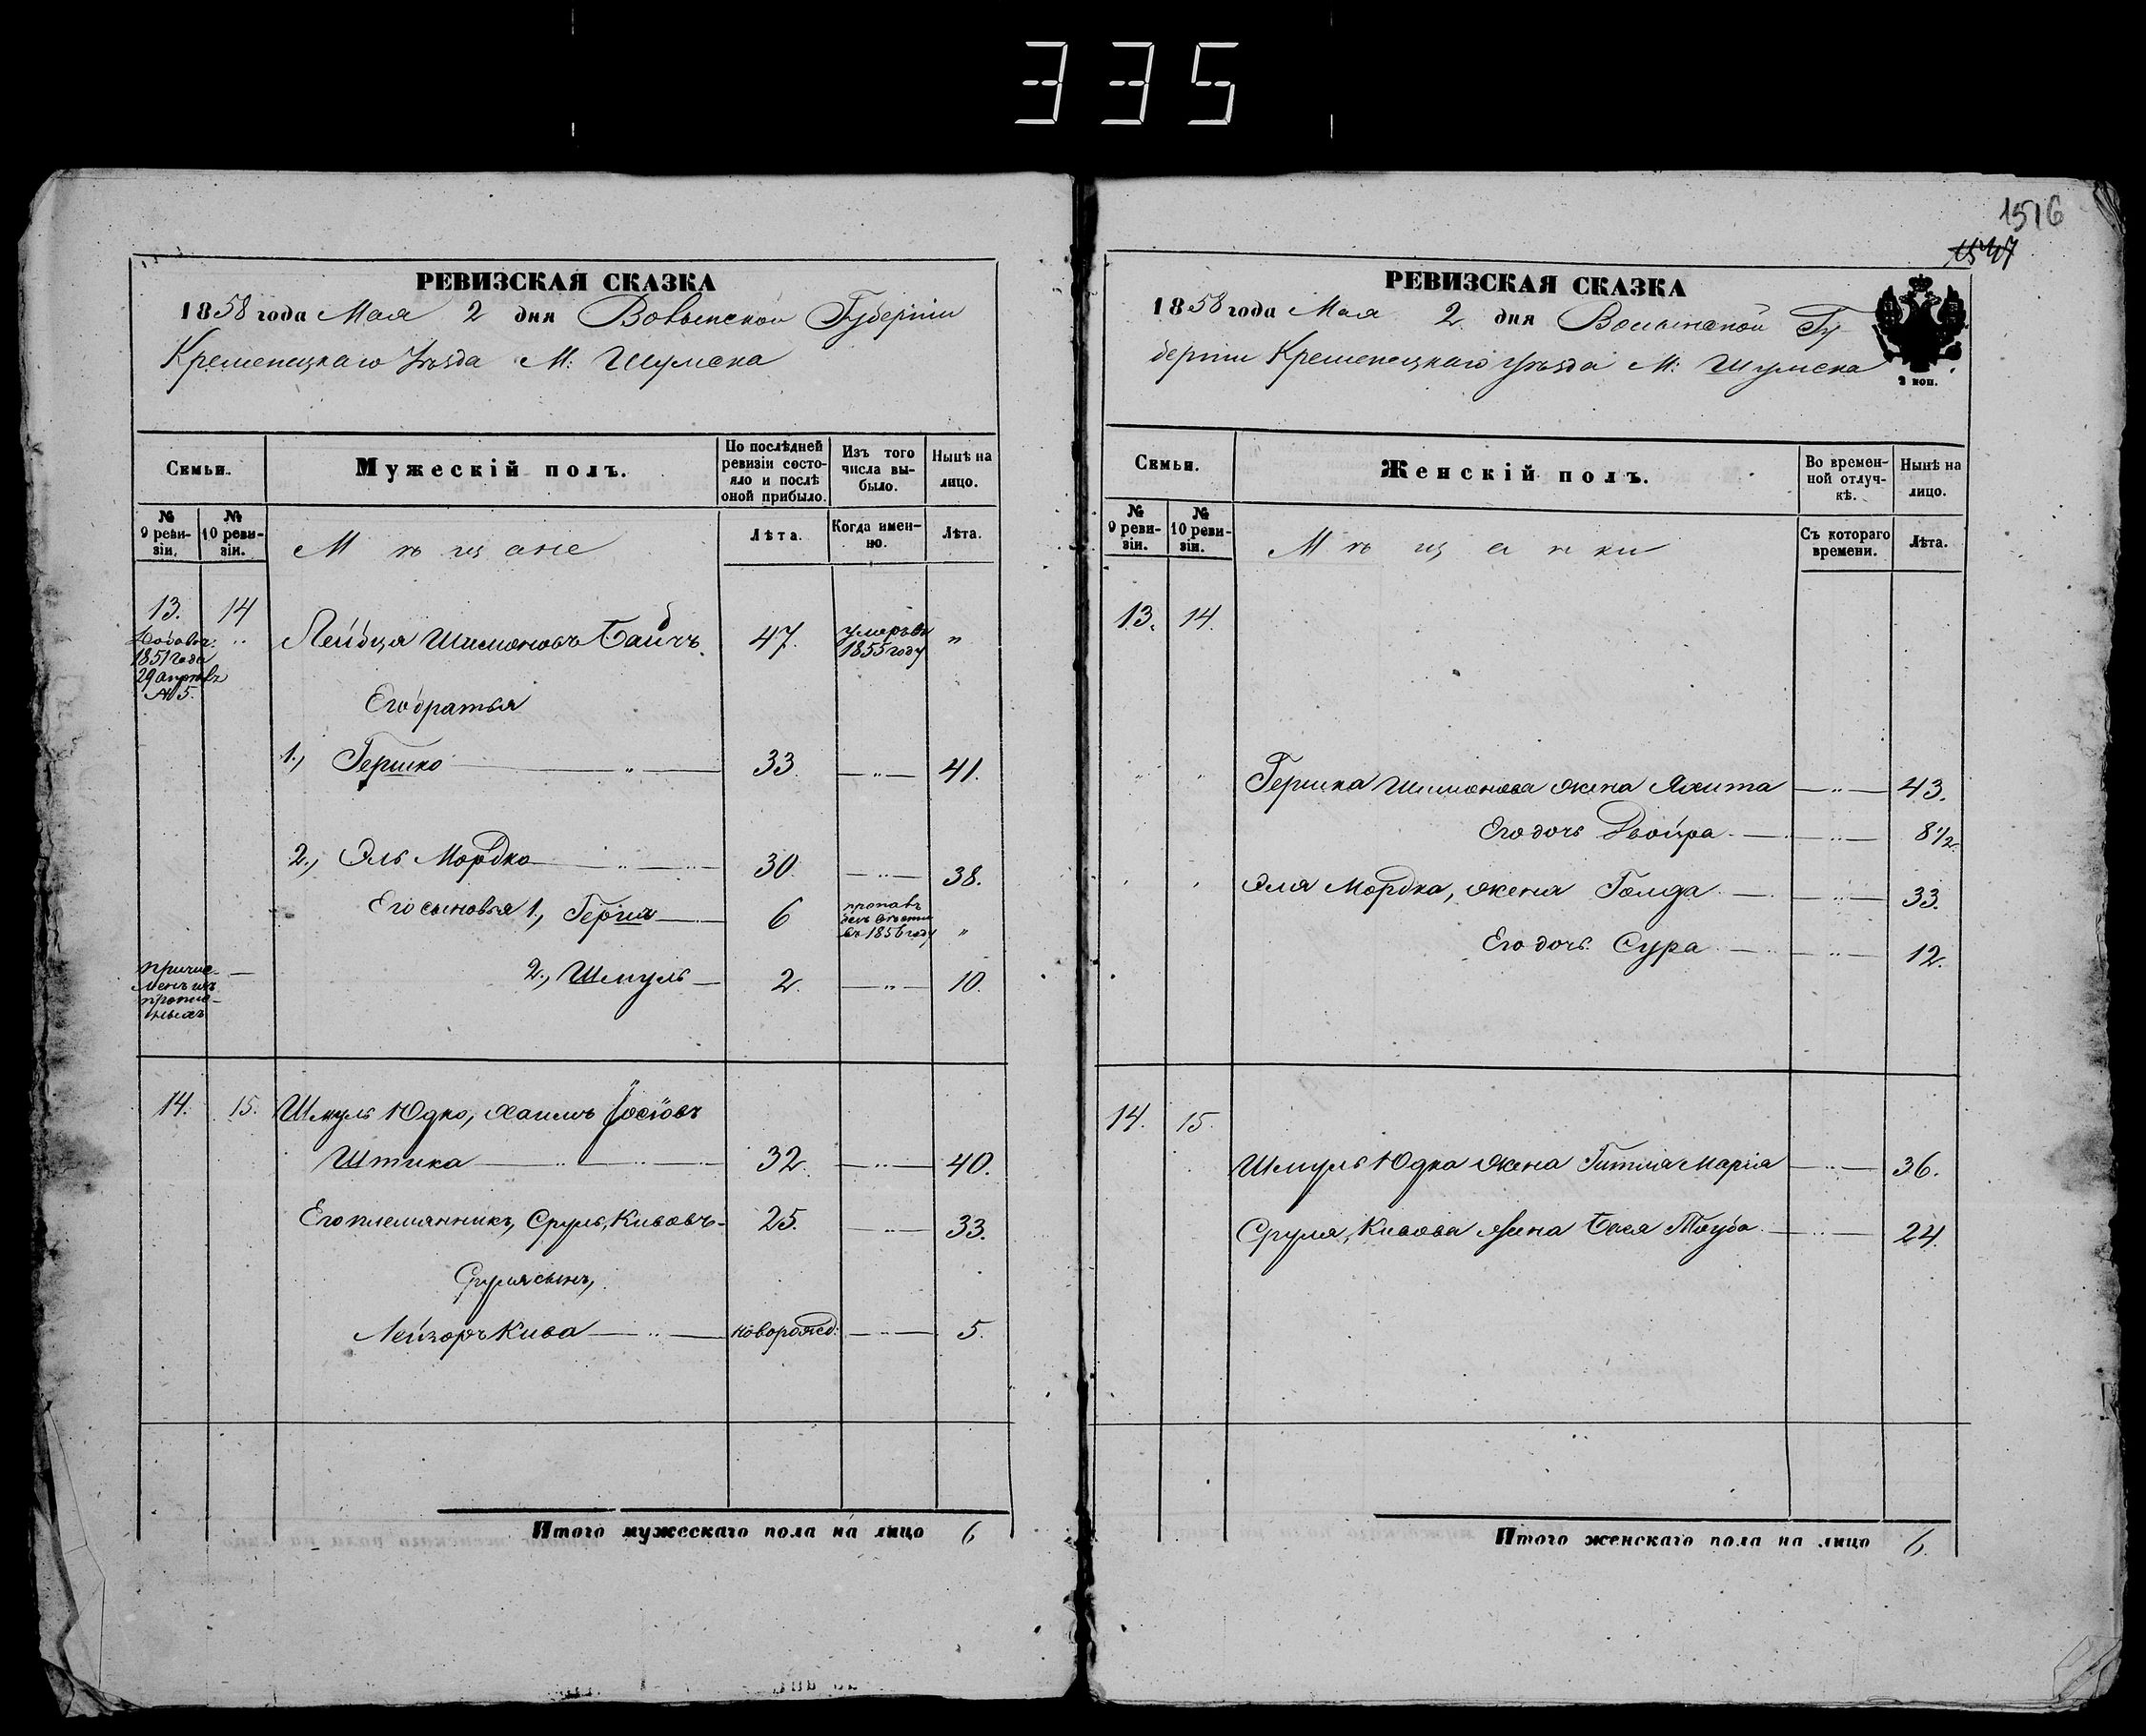 335
1516
РЕВИЗСКАЯ СКАЗКА
1858 года Мая 2 дня Волынской Губерніи
Кременецкаго Уѣзда М: Шумска
Семьи.
Мужескій полъ.
По послѣдней ревизіи состояло и послѣ оной прибыло.
Изъ того числа выбыло.
Нынѣ на лицо.
№ 9 ревизіи.
№ 10 ревизіи.
Мѣщане
Лѣта.
Когда именно.
Лѣта.
13. 14 Лейбця Шимоновъ 47. умеръ въ 1855 году "
1851 года
29 апрѣля
№ 5.
Его братья
1., Гершко " 33 " 41.
2., Эль Мордко " 30 " 38.
Его сыновья 1., Герш 6 въ 1856 году "
2., Шмуль 2. " 10.
14. 15. Шмуль Юдко, Хаимъ Іосіовъ
Штика 32. " 40.
Его племянникъ, Сруль, Кивовъ 25. " 33.
Сруля сынъ,
Лейзоръ Кива новорожд: " 5.
Итого мужескаго пола на лицо 6
РЕВИЗСКАЯ СКАЗКА
1858 года Мая 2 дня Волынской Гу
берніи Кременецкаго Уѣзда М: Шумска
2 коп.
Семьи.
Женскій полъ.
Во временной отлучкѣ.
Нынѣ на лицо.
№ 9 ревизіи.
№ 10 ревизіи.
Мѣщанки
Съ котораго времени.
Лѣта.
13. 14.
Гершка Шимонова жена Яхита " 43.
Его дочь Двойра " 8 1/2.
Эля Мордка, жена Голда " 33.
Его дочь Сура " 12.
14. 15.
Шмуль Юдка жена Гитля Маріа " 36.
Сруля, Кивова жена Бася Тауба " 24.
Итого женскаго пола на лицо 6.